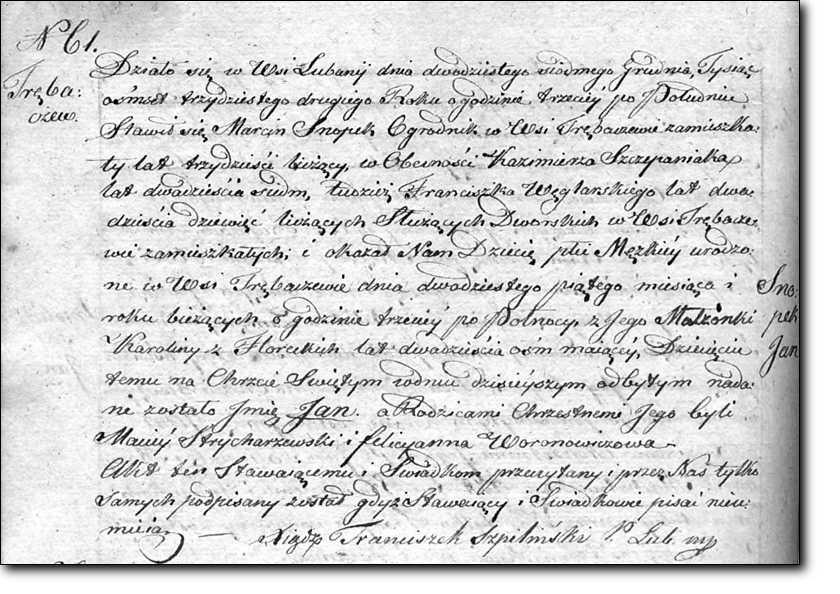 No 61.
Tręba:
czew.
Działo się w Wsi Lubanij dnia dwudziestego siódmego Grudnia, Tysiąc
ośmset trzydziestego drugiego Roku o godzinie trzeciej po Południu
Stawił się Marcin Snopek Ogrodnik w Wsi Trębaczewie zamieszka-
ły lat trzydzieści liczący, w Obecności Kazimierza Szczypaniaka
lat dwadzieścia siedm, tudzież Franciszka Węglarskiego lat dwa-
dzieścia dziewięć liczących Służących Dworskich w Wsi Trębacze-
wie zamieszkałych; i okazał Nam Dziecię płci Męzkiej urodzo-
ne w Wsi Trębaczewie dnia dwudziestego piątego miesiąca i
roku bieżących o godzinie trzeciej po Północy, z Jego Małżonki
Karoliny z Floreckich lat dwadzieścia ośm mającej, Dziecięciu
temu na Chrzcie Swiętym w dniu dzisieyszym odbytym nada-
ne zostało Jmię Jan. a Rodzicami Chrzestnemi Jego byli
Maciey Strycharzewski i Felicyanna Woronowiczowa
Akt ten Stawaiącemu i Swiadkom przeczytany i przez Nas tylko
samych podpisany został gdyż Stawaiący i Swiadkowie pisać nieu-
mieią
Xiądz Franciszek Szpilmński P. Lub. mp
Sno-
pek
Jan